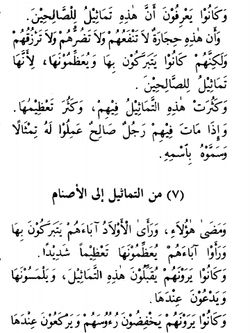 وَكَانُوا يَعْرِفُونَ أَنَّ هَذِهِ تَمَاثِيلُ لِلصَّالِحِينَ.
وَأَن هَذِهِ حِجَارَةٌ لاَ تَنْفَعُهُمْ وَلاَ تَضُرُّهُمْ وَلاَ تَرْزُقُهُمْ
وَلَكِنَّهُمْ كَانُوْا يَتَبَرَّكُونَ بِهَا وَيُعَظِّمُونَهَا، لِأَنَّهَا
تَمَاثِيلُ لِلصَّالِحِينَ.
وَكَثُرَتْ هَذِهِ التَّمَاثِيلُ فِيهِمْ، وَكَثُرَ تَعْظِيمُهَا.
وَإِذَا مَاتَ فِيهِمْ رَجُلٌ صَالِحٌ عَمِلُوا لَهُ تِمْثَالًا
وَسَمَّوْهُ بِاسْمِهِ.
(٧) من التماثيل إلى الأصنام
وَمَضَى هَؤُلَاءِ، وَرَأَى الْأَوْلَادُ آبَاءَهُمْ يَتَبَرَّكُونَ بِهَا
وَرَأَوْا آبَاءَهُمْ يُعَظِّمُونَهَا تَعْظِيماً شَدِيْدًا.
وَكَانُوا يَرَوْنَهُمْ يُقَبِّلُونَ هَذِهِ التَّمَاثِيْلَ، وَيَلْمَسُونَهَا
وَيَدْعُونَ عِنْدَهَا.
وَكَانُوا يَرَوْنَهُمْ يَخْفِضُونَ رُءُوسَهُمْ وَيَرْكَعُونَ عِنْدَهَا